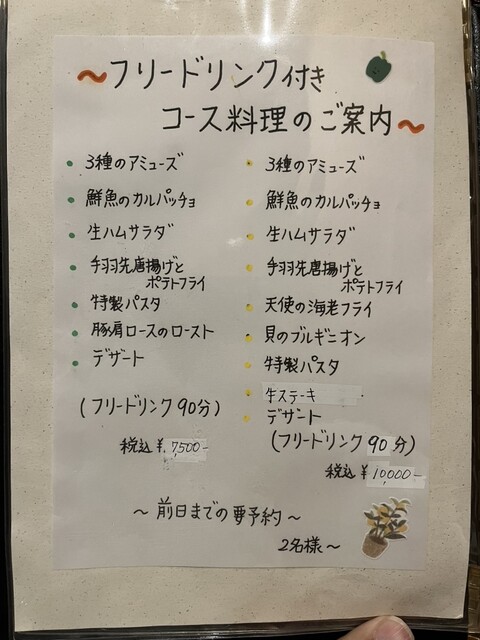 ～フリードリンク付き
コース料理のご案内～
・3種のアミューズ
・鮮魚のカルパッチョ
・生ハムサラダ
・手羽先唐揚げと
ポテトフライ
・特製パスタ
・豚肩ロースのロースト
・デザート
(フリードリンク90分)
税込¥7,500-
・3種のアミューズ
・鮮魚のカルパッチョ
・生ハムサラダ
・手羽先唐揚げと
ポテトフライ
・天使の海老フライ
・貝のブルギニオン
・特製パスタ
・牛ステーキ
・デザート
(フリードリンク90分)
税込¥10,000-
～前日までの要予約～
2名様～